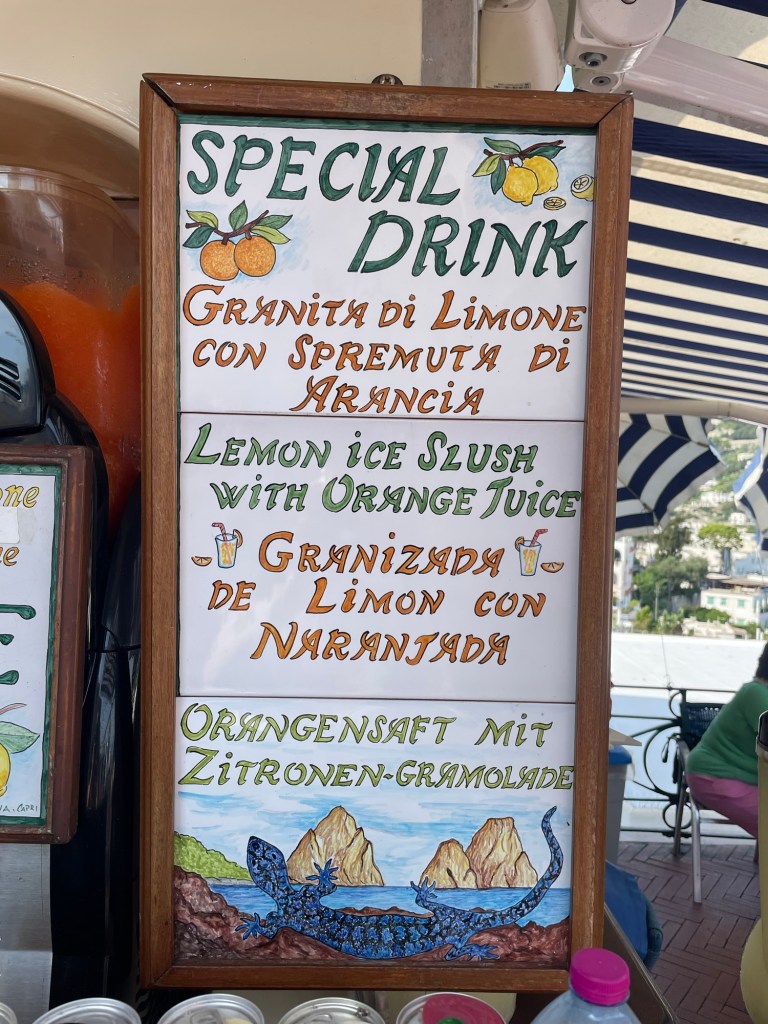 SPECIAL
DRINK
GRANITA DI LIMONE
CON SPREMUTA DI
ARANCIA
LEMON ICE SLUSH
WITH ORANGE JUICE
GRANIZADA
DE LIMON CON
NARANJADA
ORANGENSAFT MIT
ZITRONEN-GRAMOLADE
CAPRI